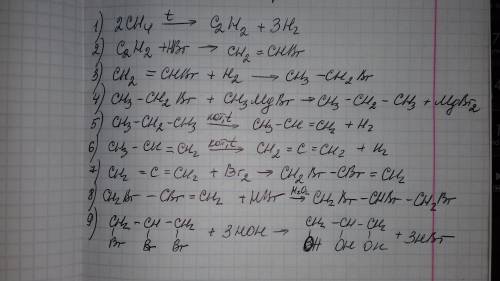 1) 2CH₄ →(t) C₂H₂ + 3H₂
2) C₂H₂ + HBr → CH₂ = CHBr
3) CH₂ = CHBr + H₂ → CH₃ - CH₂Br
4) CH₃ - CH₂Br + CH₃MgBr → CH₃ - CH₂ - CH₃ + MgBr₂
5) CH₃ - CH₂ - CH₃ →(кат, t) CH₃ - CH = CH₂ + H₂
6) CH₃ - CH = CH₂ →(кат, t) CH₂ = C = CH₂ + H₂
7) CH₂ = C = CH₂ + Br₂ → CH₂Br - CBr = CH₂
8) CH₂Br - CBr = CH₂ + HBr →(H₂O₂) CH₂Br - CHBr - CH₂Br
9) CH₂ - CH - CH₂ + 3HOH → CH₂ - CH - CH₂ + 3HBr
Br Br Br OH OH OH